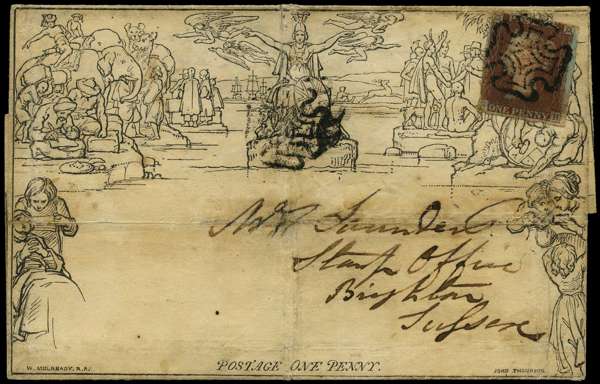 ONE PENNY
Mr Saunders
Stamp Office
Brighton
Sussex
POSTAGE ONE PENNY.
W. MULREADY, R.A.
JOHN THOMPSON